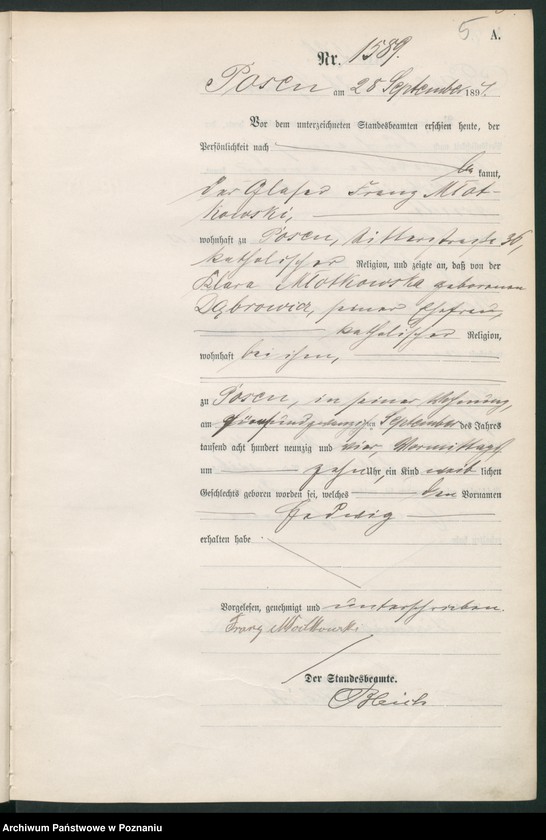 5 A.
Nr. 1589.
Posen am 28 September 1894.
Vor dem unterzeichneten Standesbeamten erschien heute, der
Persönlichkeit nach
be kannt,
der Glaser Franz Młot-
kowski,
wohnhaft zu Posen, Ritterstraße 36,
katholischer Religion, und zeigte an, daß von der
Klara Młotkowska geborenen
Dąbrowicz, seiner Ehefrau,
katholischer Religion,
wohnhaft bei ihm,
zu Posen, in seiner Wohnung,
am fünfundzwanzigsten September des Jahres
tausend acht hundert neunzig und vier, Vormittags
um zehn Uhr, ein Kind weib lichen
Geschlechts geboren worden sei, welches den Vornamen
Hedwig
erhalten habe
Vorgelesen, genehmigt und unterschrieben.
Franz Młotkowski
Der Standesbeamte.
Archiwum Państwowe w Poznaniu